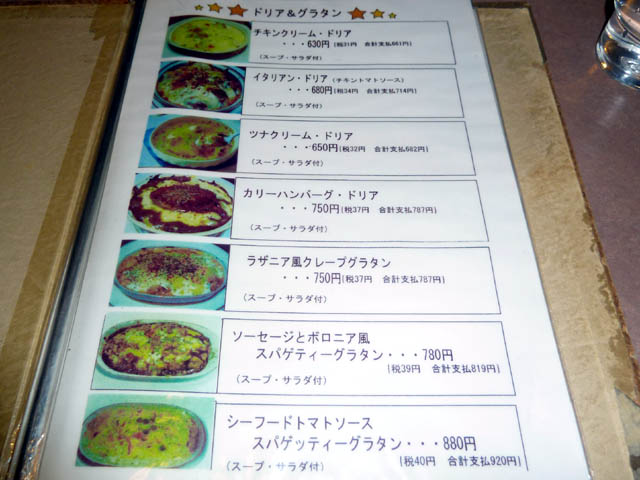 ドリア&グラタン
チキンクリーム・ドリア
・・・630円 [税31円 合計支払661円]
(スープ・サラダ付)
イタリアン・ドリア (チキントマトソース)
・・・680円[税34円 合計支払714円]
(スープ・サラダ付)
ツナクリーム・ドリア
・・・650円[税32円 合計支払682円]
(スープ・サラダ付)
カリーハンバーグ・ドリア
・・・750円[税37円 合計支払787円]
(スープ・サラダ付)
ラザニア風クレープグラタン
・・・750円[税37円 合計支払787円]
(スープ・サラダ付)
ソーセージとボロニア風
スパゲティーグラタン・・・780円
[税39円 合計支払819円]
(スープ・サラダ付)
シーフードトマトソース
スパゲッティーグラタン・・・880円
[税40円 合計支払920円]
(スープ・サラダ付)